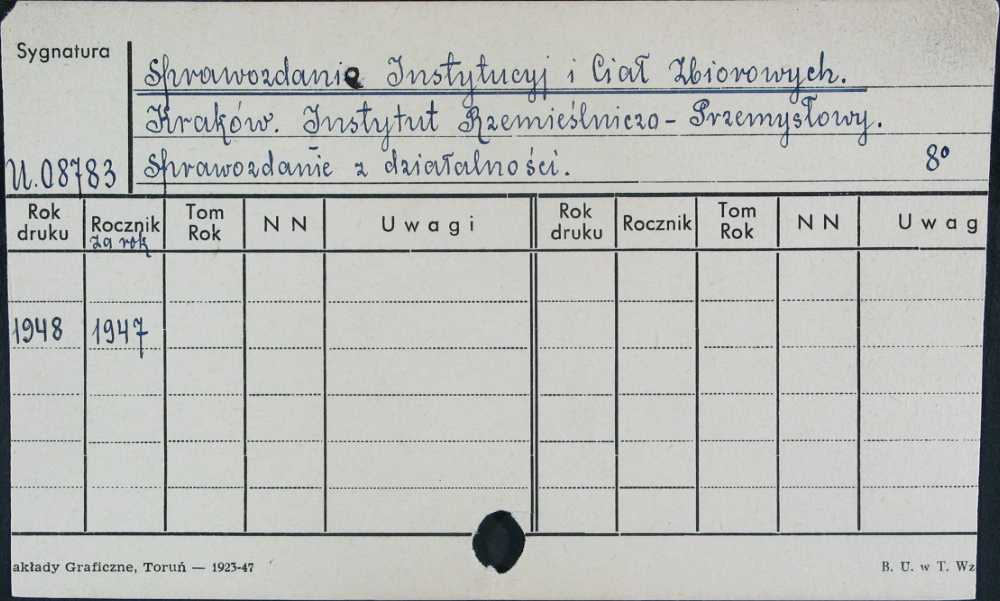 Sygnatura
Sprawozdanie Instytucyj i Ciał Zbiorowych.
Kraków. Instytut Rzemieślniczo-Przemysłowy.
U.08783 Sprawozdanie z działalności. 8°
Rok druku Rocznik za rok Tom Rok N N Uwagi Rok druku Rocznik Tom Rok N N Uwag
1948 1947
akłady Graficzne, Toruń — 1923-47 B. U. w T. Wz